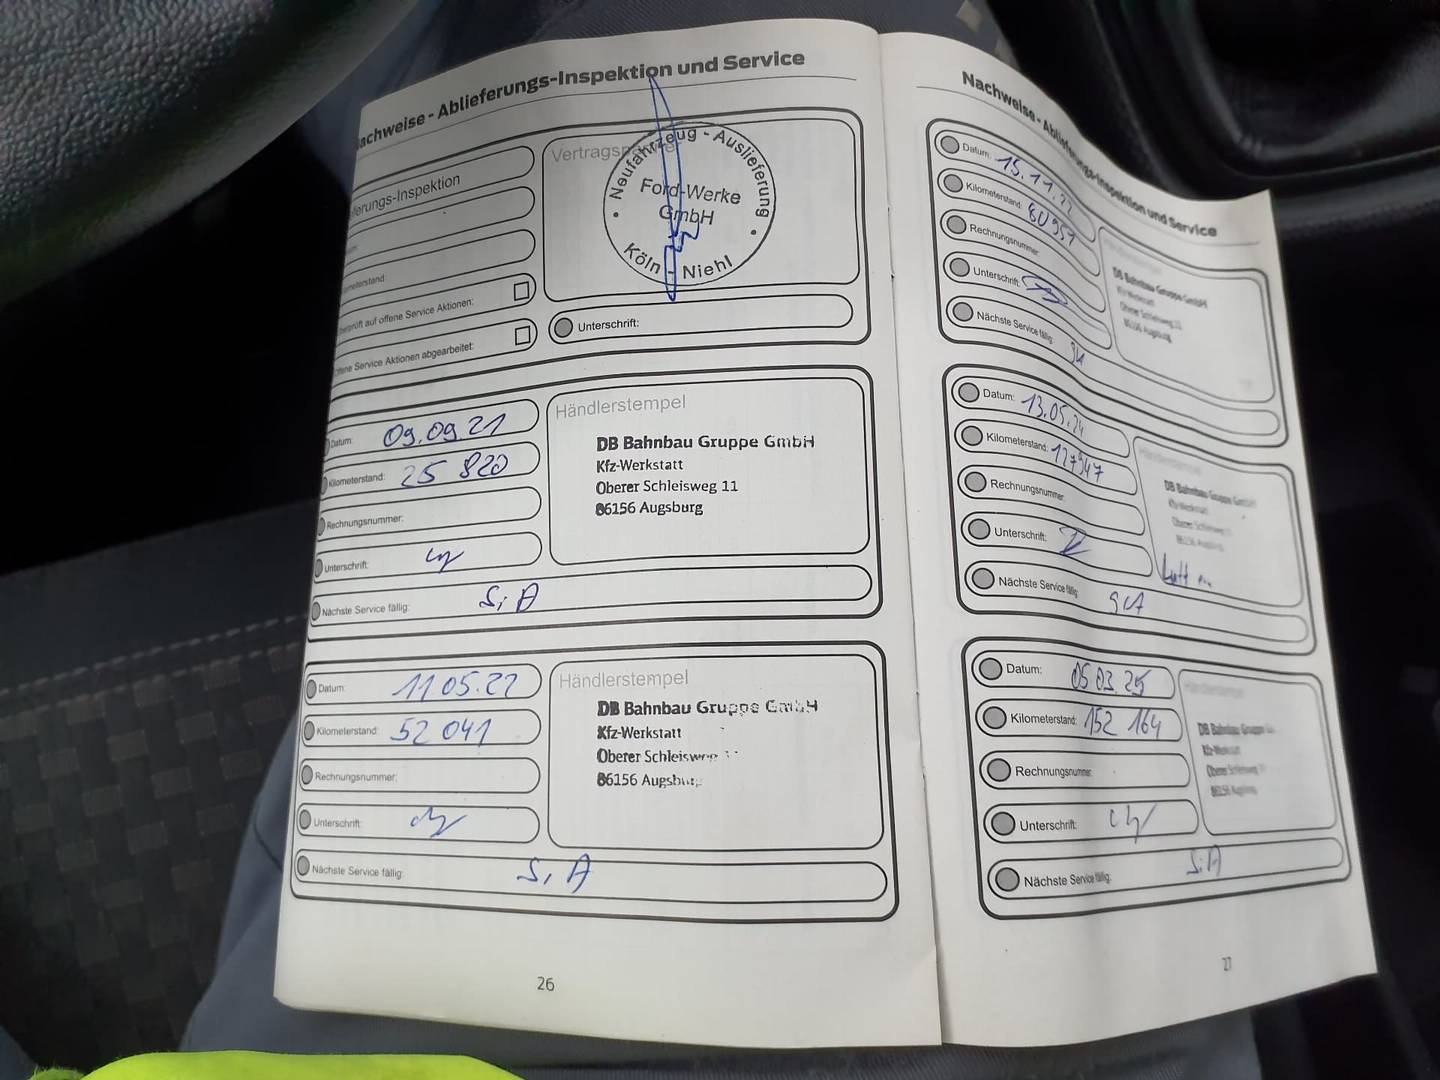 Nachweise - Ablieferungs-Inspektion und Service
Vertragspartner
Neufahrzeug - Auslieferung
Ford-Werke
GmbH
Köln - Niehl
ferungs-Inspektion
ometerstand:
prüft auf offene Service Aktionen:
ffene Service Aktionen abgearbeitet:
Unterschrift:
Datum: 09.09.21
Kilometerstand: 25 820
Rechnungsnummer:
Unterschrift:
Nächste Service fällig: S.i A
Händlerstempel
DB Bahnbau Gruppe GmbH
Kfz-Werkstatt
Oberer Schleisweg 11
86156 Augsburg
Datum: 11 05.22
Kilometerstand: 52 041
Rechnungsnummer:
Unterschrift:
Nächste Service fällig: S.i A
Händlerstempel
DB Bahnbau Gruppe GmbH
Kfz-Werkstatt
Oberer Schleisweg
86156 Augsburg
26
Nachweise - Ablieferungs-Inspektion und Service
Datum: 15.11.22
Kilometerstand:
Rechnungsnummer:
Unterschrift:
Nächste Service fällig:
Händlerstempel
DB Bahnbau Gruppe GmbH
Kfz-Werkstatt
Oberer Schleisweg 11
86156 Augsburg
Datum: 13.05.24
Kilometerstand: 127947
Rechnungsnummer:
Unterschrift:
Nächste Service fällig:
Händlerstempel
DB Bahnbau Gruppe GmbH
Kfz-Werkstatt
Oberer Schleisweg
86156 Augsburg
Datum: 05 03 25
Kilometerstand: 152 164
Rechnungsnummer:
Unterschrift:
Nächste Service fällig: S.i A
Händlerstempel
DB Bahnbau Gruppe
Kfz-Werkstatt
Oberer Schleisweg
86156 Augsburg
27